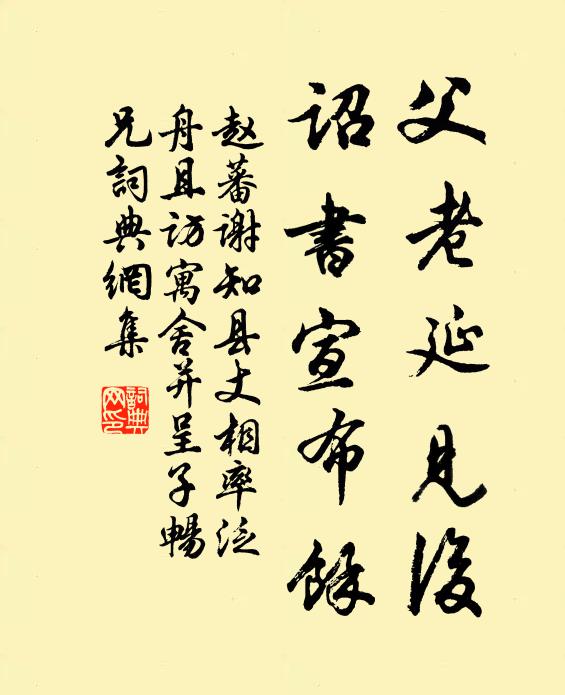 父老延见後
詔書宣布餘
赵蕃谢知县丈相率泛
舟且访寓舍并呈子暢
兄詞典網集
詞典网印